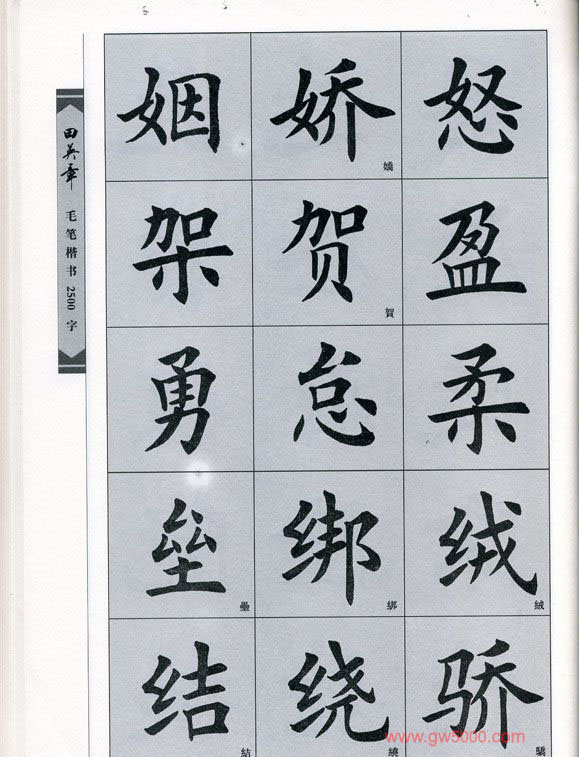 田英章
毛笔楷书2500字
姻 娇 嬌 怒
架 贺 賀 盈
勇 怠 柔
垒 壘 绑 綁 绒 絨
结 結 绕 繞 骄 驕
www.gw5000.com